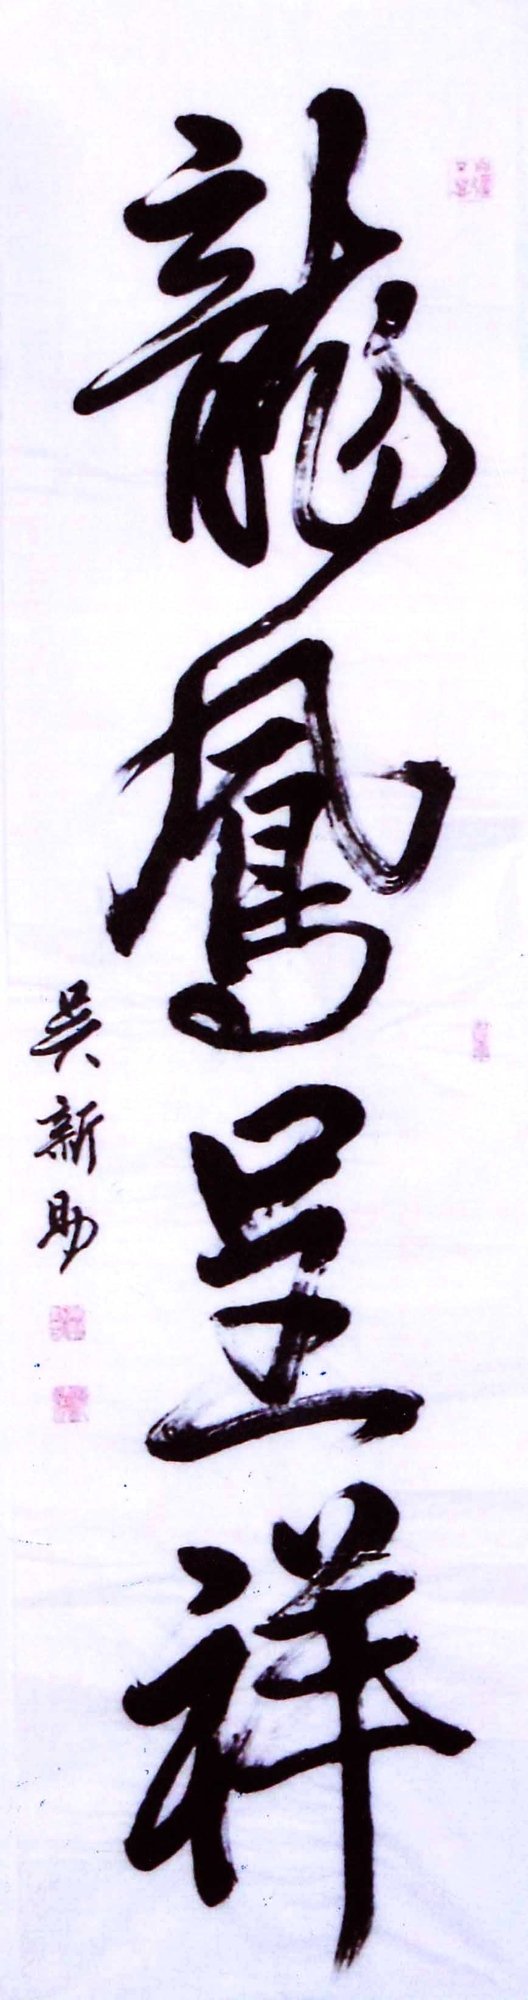 龍鳳呈祥
吳新助